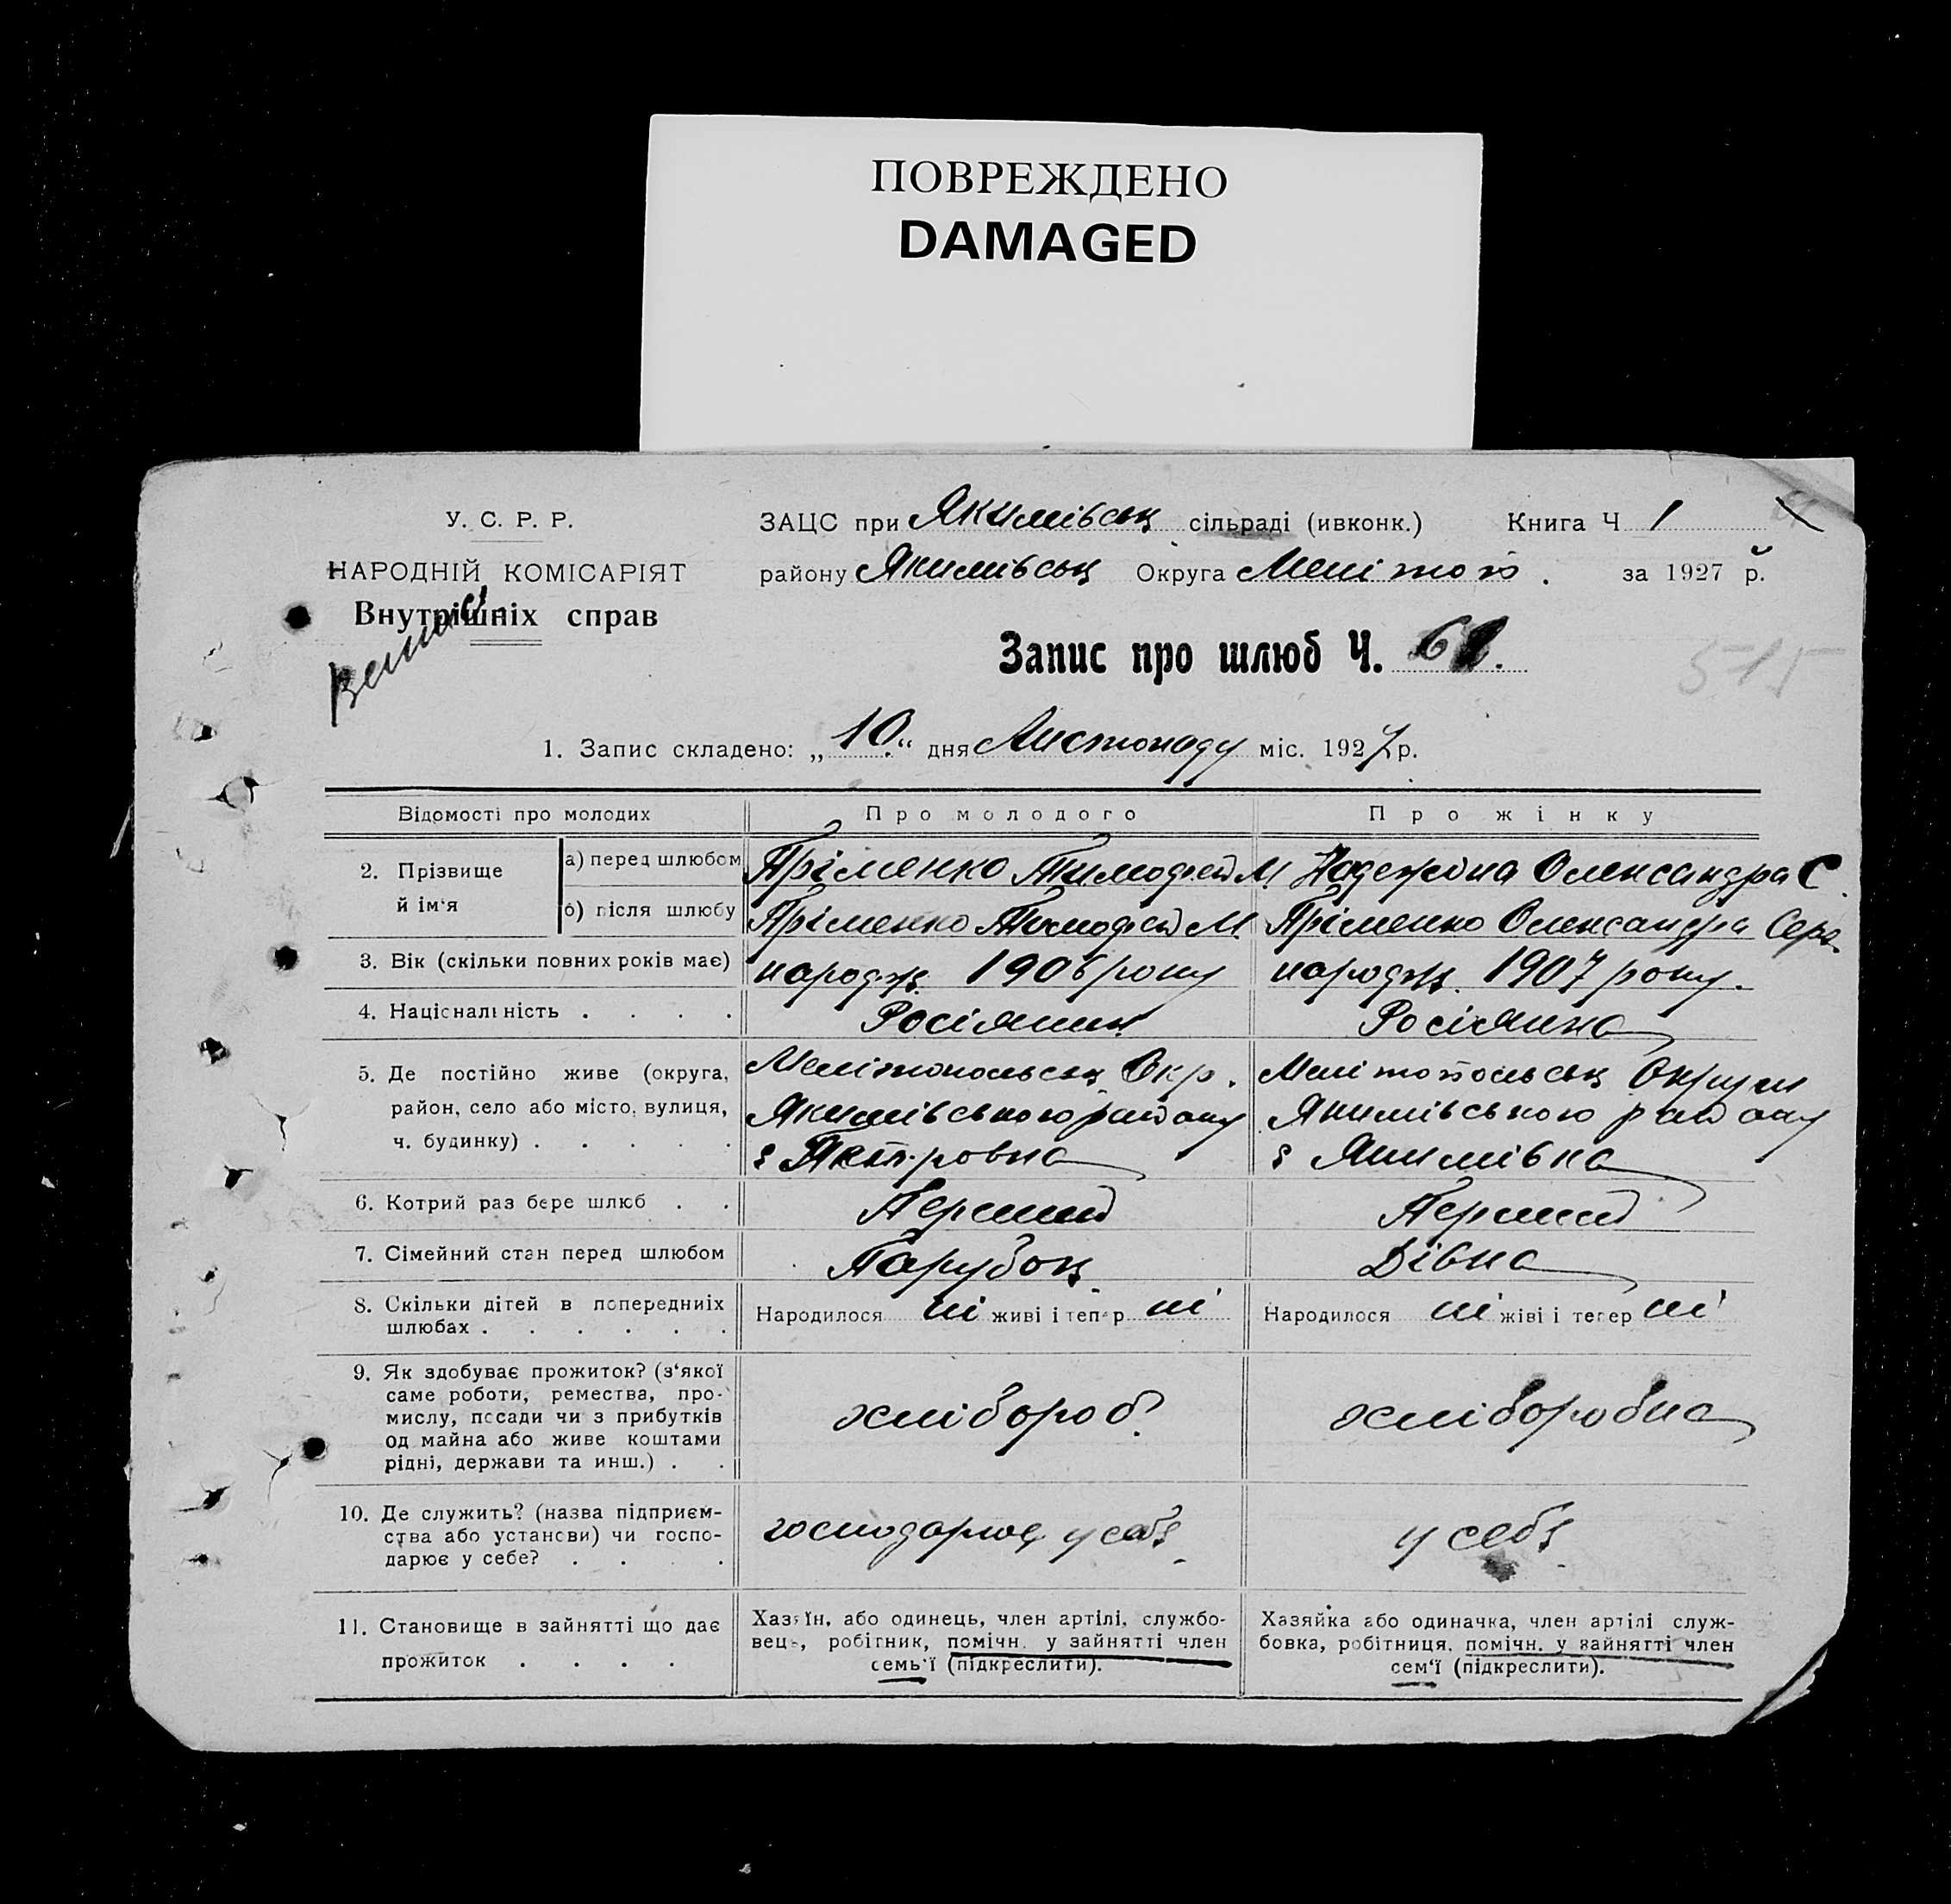 ПОВРЕЖДЕНО
DAMAGED
У. С. Р. Р.
НАРОДНІЙ КОМІСАРІЯТ
Внутрішніх справ
ЗАЦС при Якимівськ сільраді (ивконк.) Книга Ч 1
району Якимівськ Округа Мелітоп. за 1927 р.
Запис про шлюб Ч.
515
1. Запис складено: „10“ дня Листопаду міс. 1927 р.
Відомості про молодих Про молодого Про жінку
2. Прізвище й ім‘я
а) перед шлюбом Пріменко Тимофей М Надеждіна Олександра С
б) після шлюбу Пріменко Тимофей М. Пріменко Олександра Серг.
3. Вік (скільки повних років має) народж. 1906 року народж. 1907 року.
4. Національність . . . . Росіянин Росіянка
5. Де постійно живе (округа, Мелітопольськ Окр. Мелітопольськ Округи
район, село або місто, вулиця, Якимівського району Якимівського району
ч. будинку) . . . . . Якимівка
6. Котрий раз бере шлюб . . Перший Перший
7. Сімейний стан перед шлюбом Парубок Дівка
8. Скільки дітей в попередниіх Народилося ні живі і тепер ні Народилося ні жіві і тепер ні
шлюбах . . . . . .
9. Як здобуває прожиток? (з‘якої
саме роботи, ремества, про-
мислу, посади чи з прибутків хлібороб. хліборобка
од майна або живе коштами
рідні, держави та инш.) . .
10. Де служить? (назва підприєм-
ства або установи) чи госпо- господарює у себе у себе
дарює у себе? . . . .
11. Становище в зайнятті що дає
прожиток . . . .
Хазяїн, або одинець, член артілі, службо-
вець, робітник, помічн. у зайнятті член
семь‘ї (підкреслити).
Хазяйка або одиначка, член артілі служ-
бовка, робітниця, помічн. у зайнятті член
сем‘ї (підкреслити).